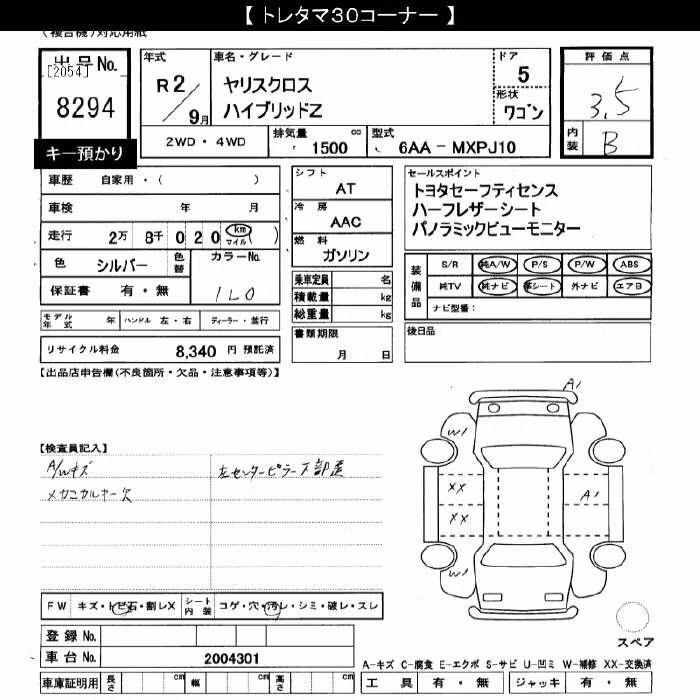 【 トレタマ30コーナー 】
(複合機)対応用紙
出品No.
[2054]
8294
キー預かり
年式
R 2/9月
車名・グレード
ヤリスクロス
ハイブリッドZ
ドア
5
形状
ワゴン
2WD・4WD
排気量 cc
1500
型式
6AA-MXPJ10
評価点
3.5
内装
B
車歴 自家用・( )
車検 年 月
走行 2万 8千 0 2 0 (km マイル)
色 シルバー 色替 カラーNo.
保証書 有・無 1L0
モデル年式 年 ハンドル 左・右 ディーラー・並行
リサイクル料金 8,340 円 預託済
シフト
AT
冷房
AAC
燃料
ガソリン
乗車定員 名
積載量 kg
総重量 kg
書類期限
月 日
セールスポイント
トヨタセーフティセンス
ハーフレザーシート
パノラミックビューモニター
装備品
S/R 純A/W P/S P/W ABS
純TV 純ナビ 革シート 外ナビ エアB
ナビ型番:
後日品
【出品店申告欄(不良箇所・欠品・注意事項等)】
【検査員記入】
A/Wキズ 左センターピラー下部歪
メカニカルキー欠
A1
W1
XX
XX
A1
W1
FW キズ・トビ石・割レX シート内装 コゲ・穴・汚レ・シミ・破レ・スレ
登録No.
車台No. 2004301
車庫証明用 長さ cm 幅 cm 高さ cm
スペア
A-キズ C-腐食 E-エクボ S-サビ U-凹ミ W-補修 XX-交換済
工具 有・無 ジャッキ 有・無